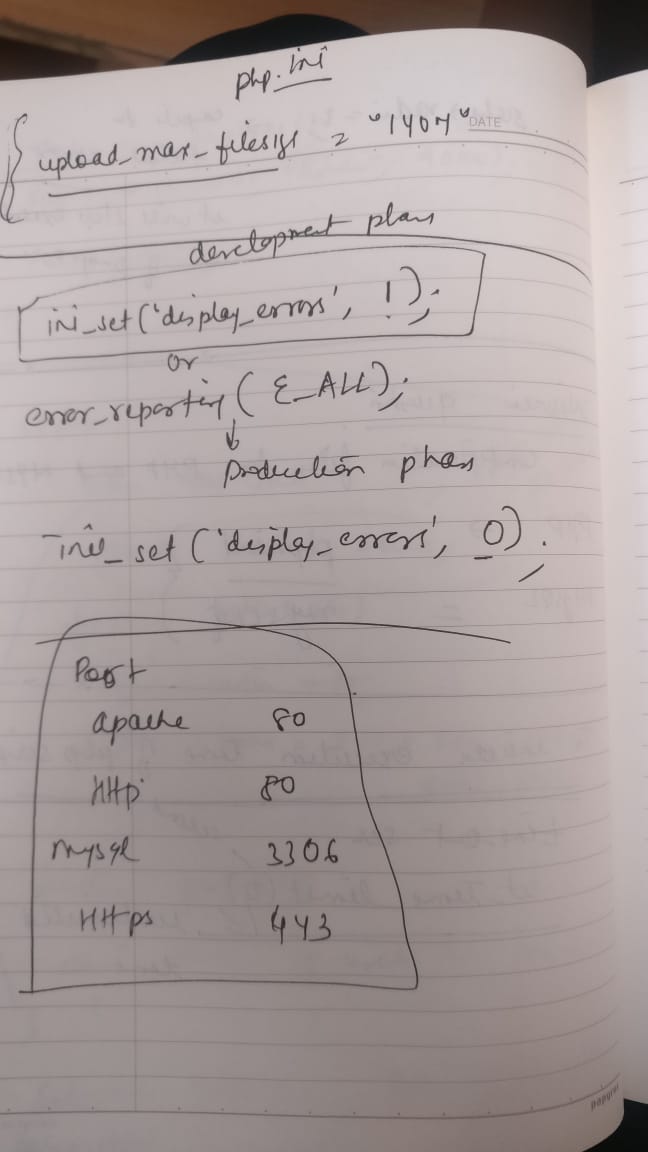 php.ini
upload_max_filesize = "140M"
DATE
development phase
ini_set('display_errors', 1);
or
error_reporting(E_ALL);
Production phase
ini_set('display_errors', 0);
Port
apache 80
Http 80
mysql 3306
Https 443